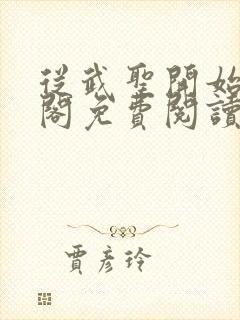 從武聖開始
閣免費閱讀
賈彥玲